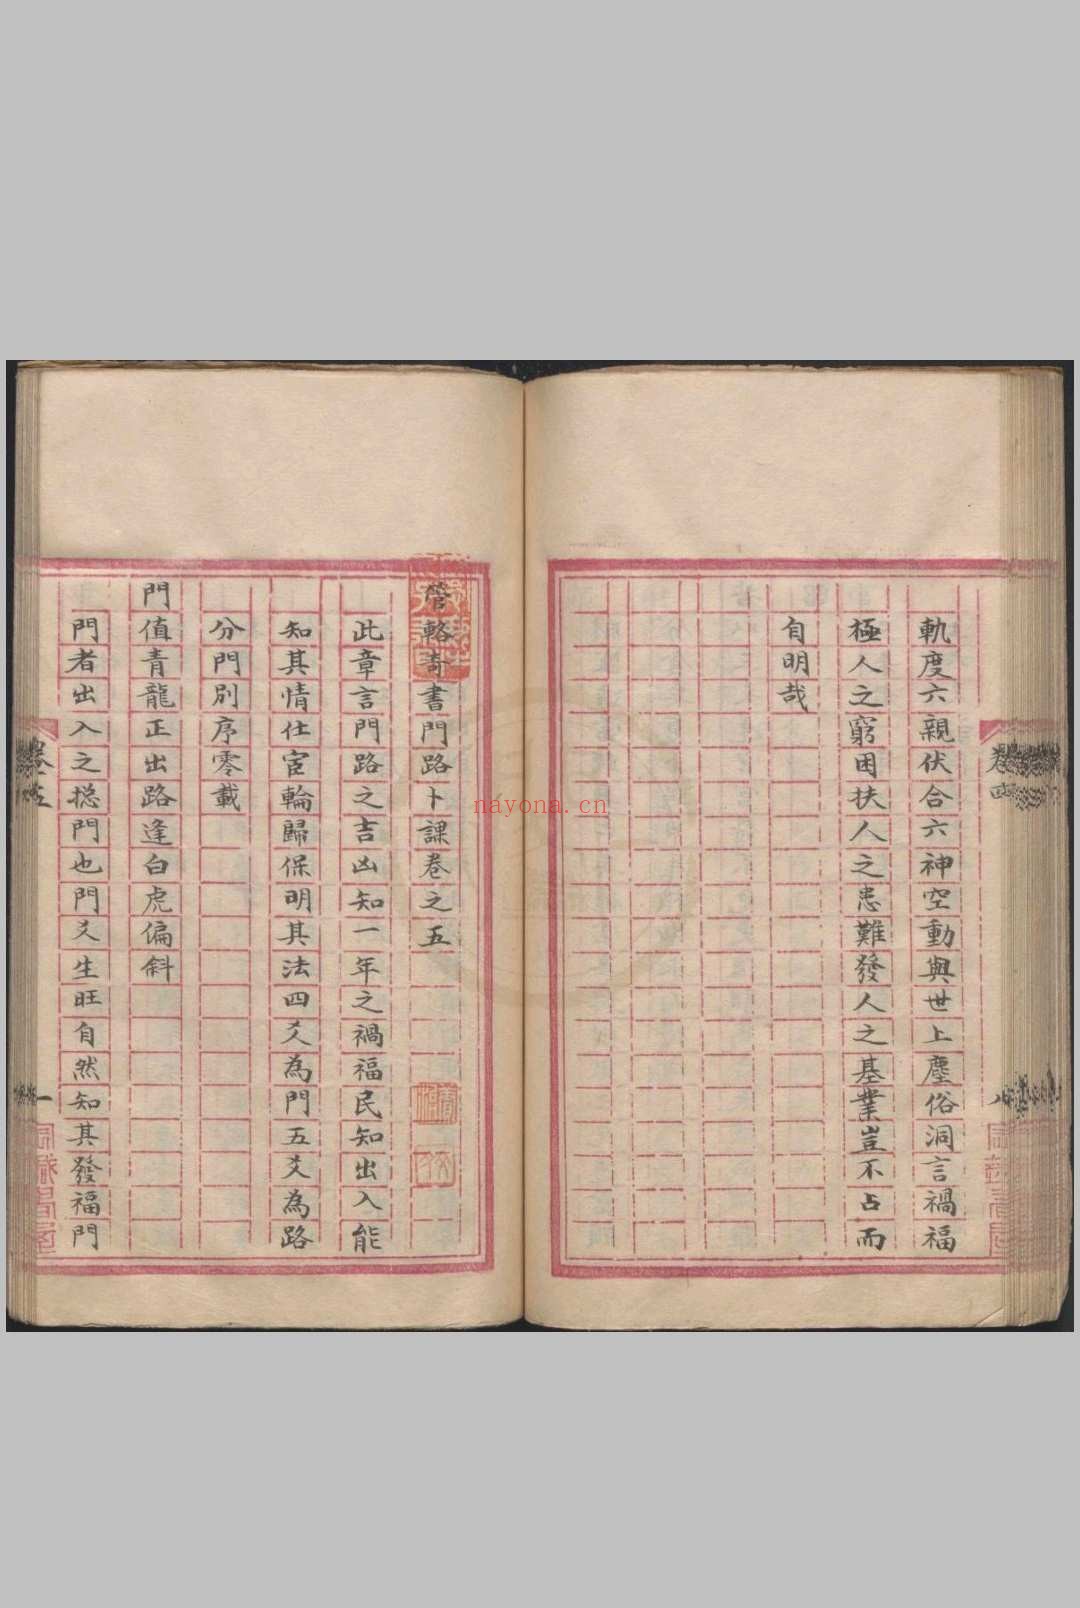 軌度六親伏合六神空動與世上塵俗洞言禍福
極人之窮困扶人之患難發人之基業豈不占而
自明哉
卷四
八
管輅奇書門路卜課卷之五
此章言門路之吉凶知一年之禍福民知出入能
知其情仕宦輪歸保明其法四爻為門五爻為路
分門別序零載
門值青龍正出路逢白虎偏斜
門者出入之捴門也門爻生旺自然知其發福門
卷之五
一
nayona.cn